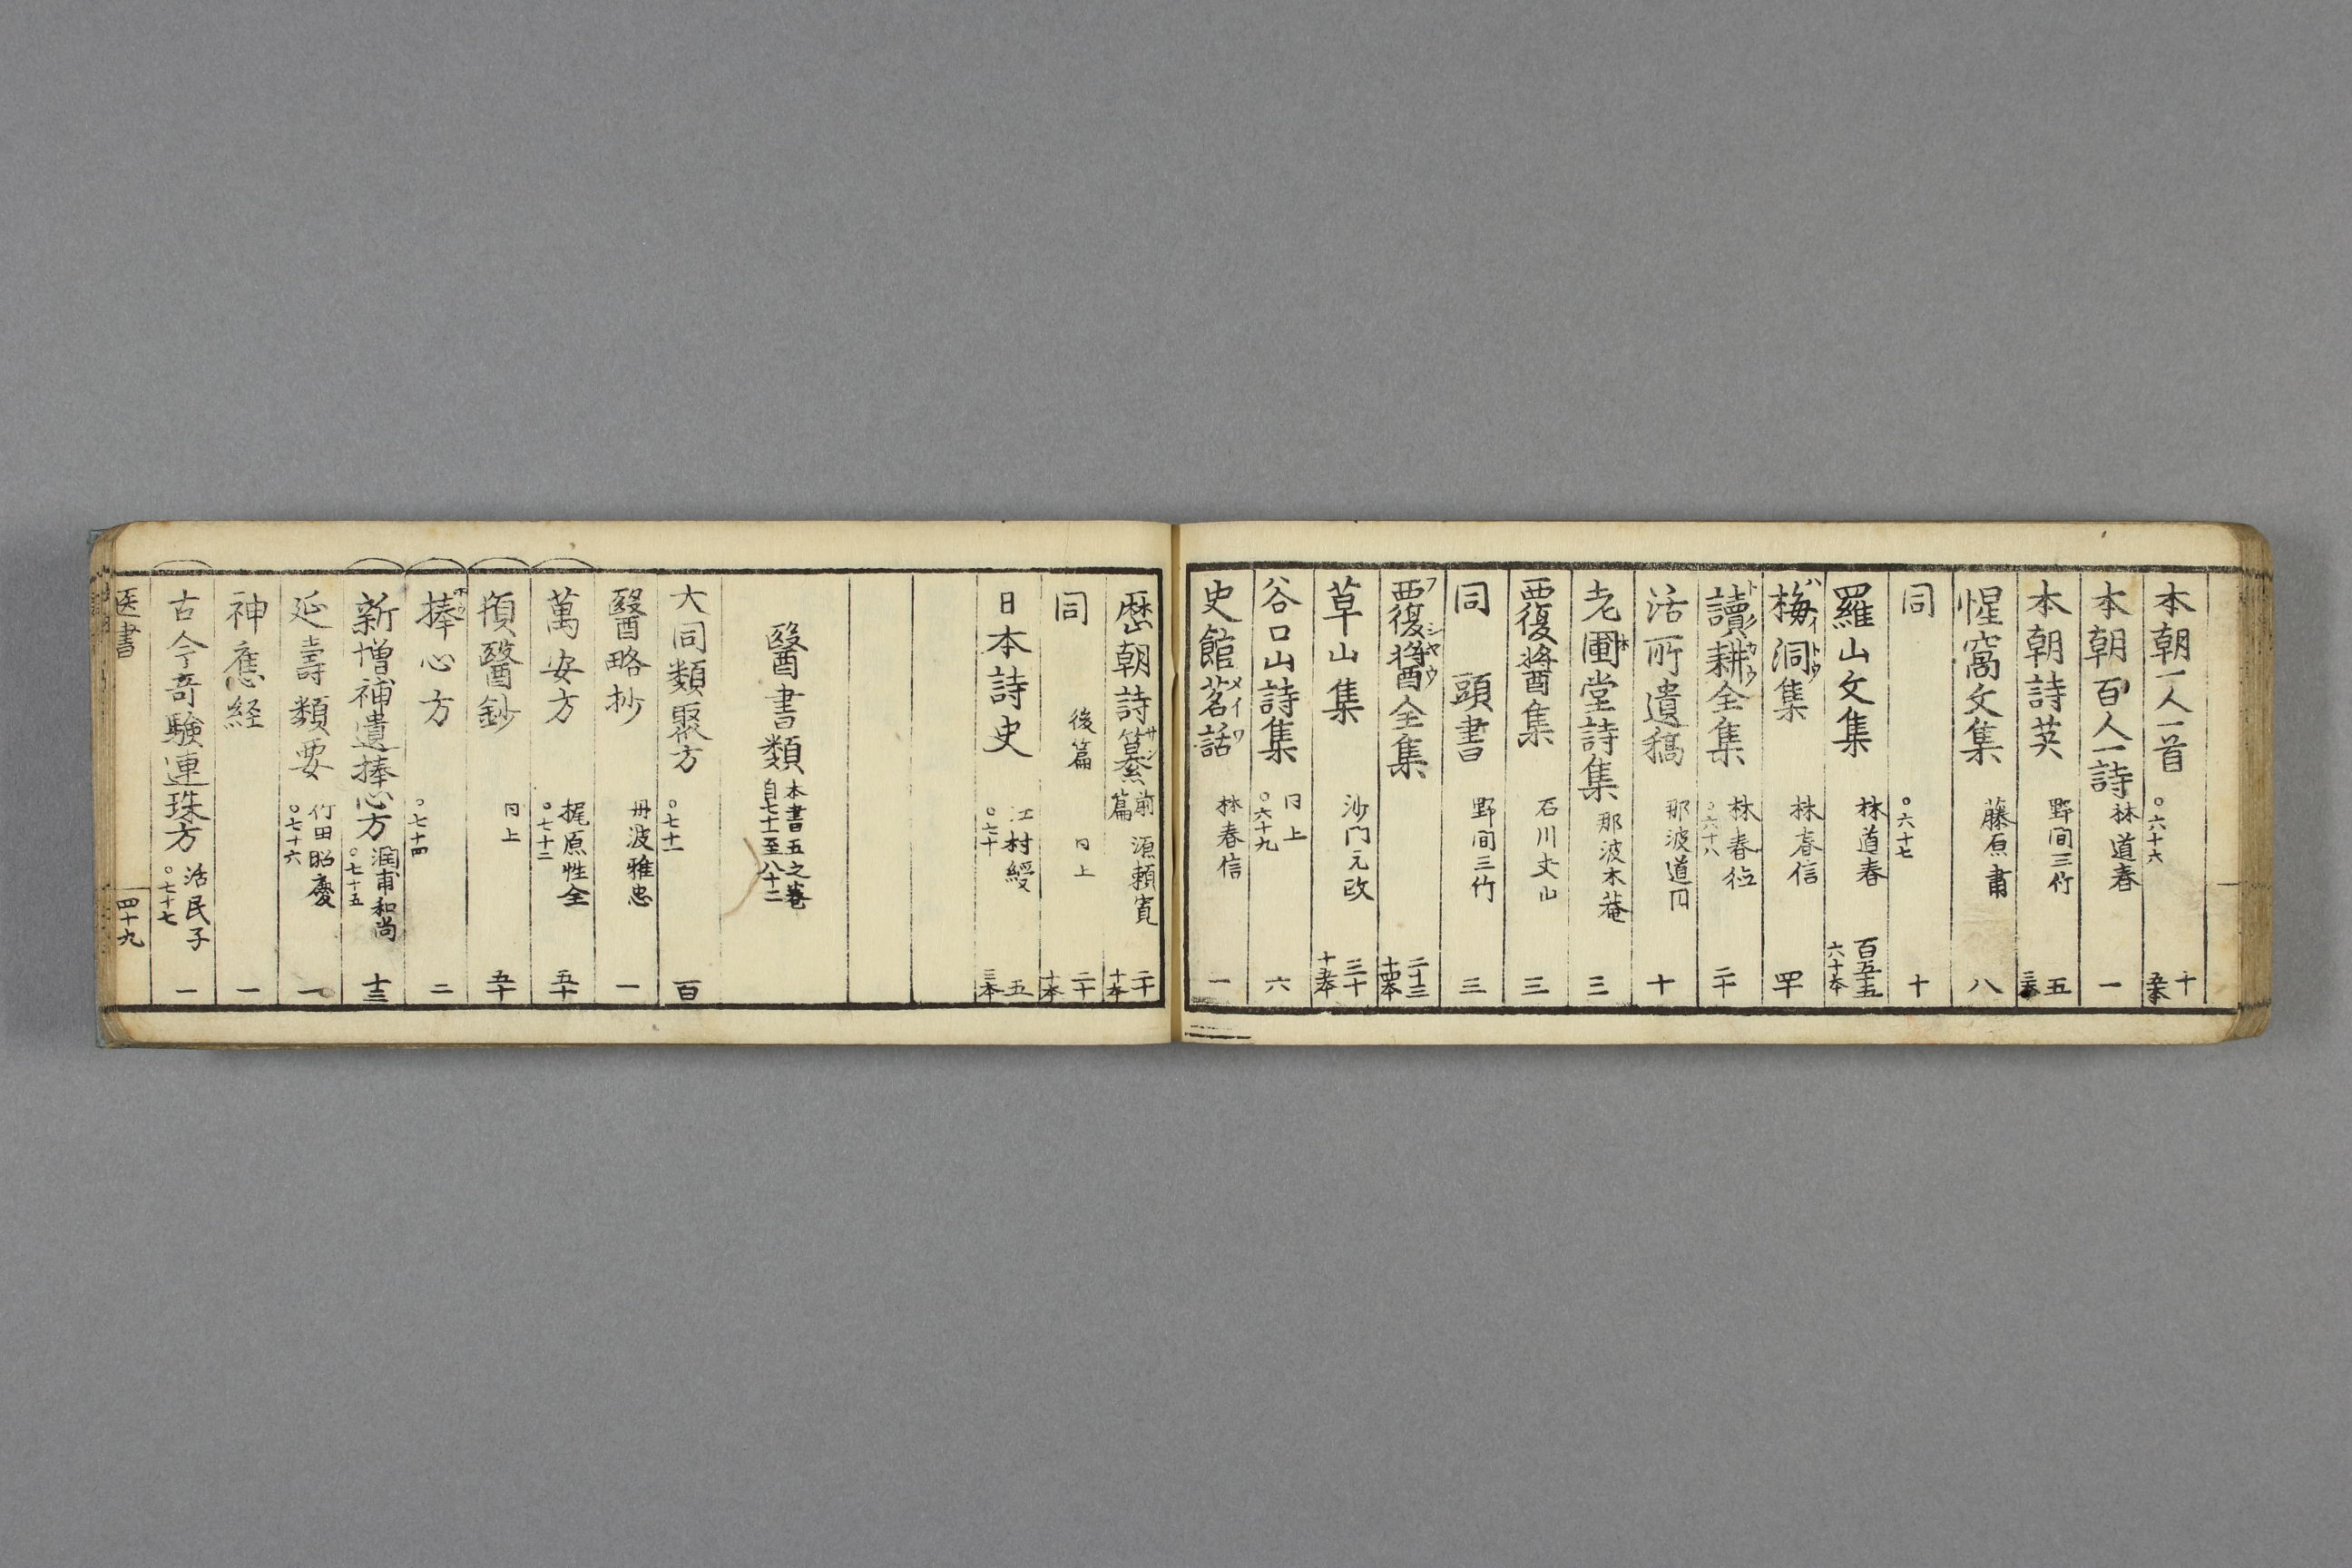 本朝一人一首 ○六十六 十 五本
本朝百人一詩 林道春 一
本朝詩英 野间三竹 五 三本
惺窩文集 藤原肅 八
同 ○六十七 十
羅山文集 林道春 百五十五 六十本
梅洞集 バイトウ 林春信 四十
讀耕全集 トクカウ 林春德 ○六十八 二十
活所遺稿 那波道円 十
老圃堂詩集 ホ 那波木菴 三
覆醬集 石川丈山 三
同 頭書 野间三竹 三
覆醬全集 フシヤウ 二十三 十四本
草山集 沙门元政 三十 十五本
谷口山詩集 同上 ○六十九 六
史館茗話 メイワ 林春信 一
歴朝詩纂 サン 前篇 源賴寬 二十 十本
同 後篇 同上 二十 十本
日本詩史 江村綬 ○七十 五 三本
醫書類 本書五之巻 自七十一至八十二
大同類聚方 ○七十一 百
醫略抄 丹波雅忠 一
萬安方 梶原性全 ○七十二 五十
頓醫鈔 同上 五十
捧心方 ホウ ○七十四 二
新增補遺捧心方 潤甫和尚 ○七十五 十三
延壽類要 竹田昭慶 ○七十六 一
神應経 一
古今奇驗連珠方 活民子 ○七十七 一
医書 四十九